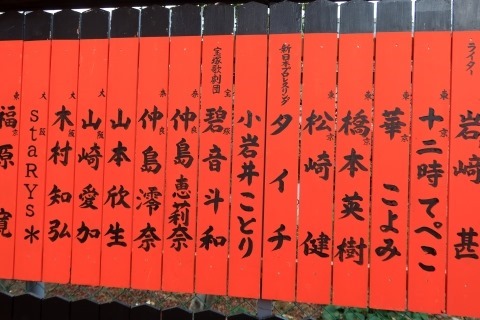 ライター
岩﨑 甚
東京 十二時てぺこ
東京 華 こよみ
東京 橋本英樹
東京 松崎 健
新日本プロレスリング
タイチ
小岩井ことり
宝塚歌劇団
宝塚 碧音斗和
奈良 仲島恵莉奈
奈良 仲島澪奈
大阪 山本欣生
大阪 山崎愛加
大阪 木村知弘
大阪 staRYs*
東京 福原 寛